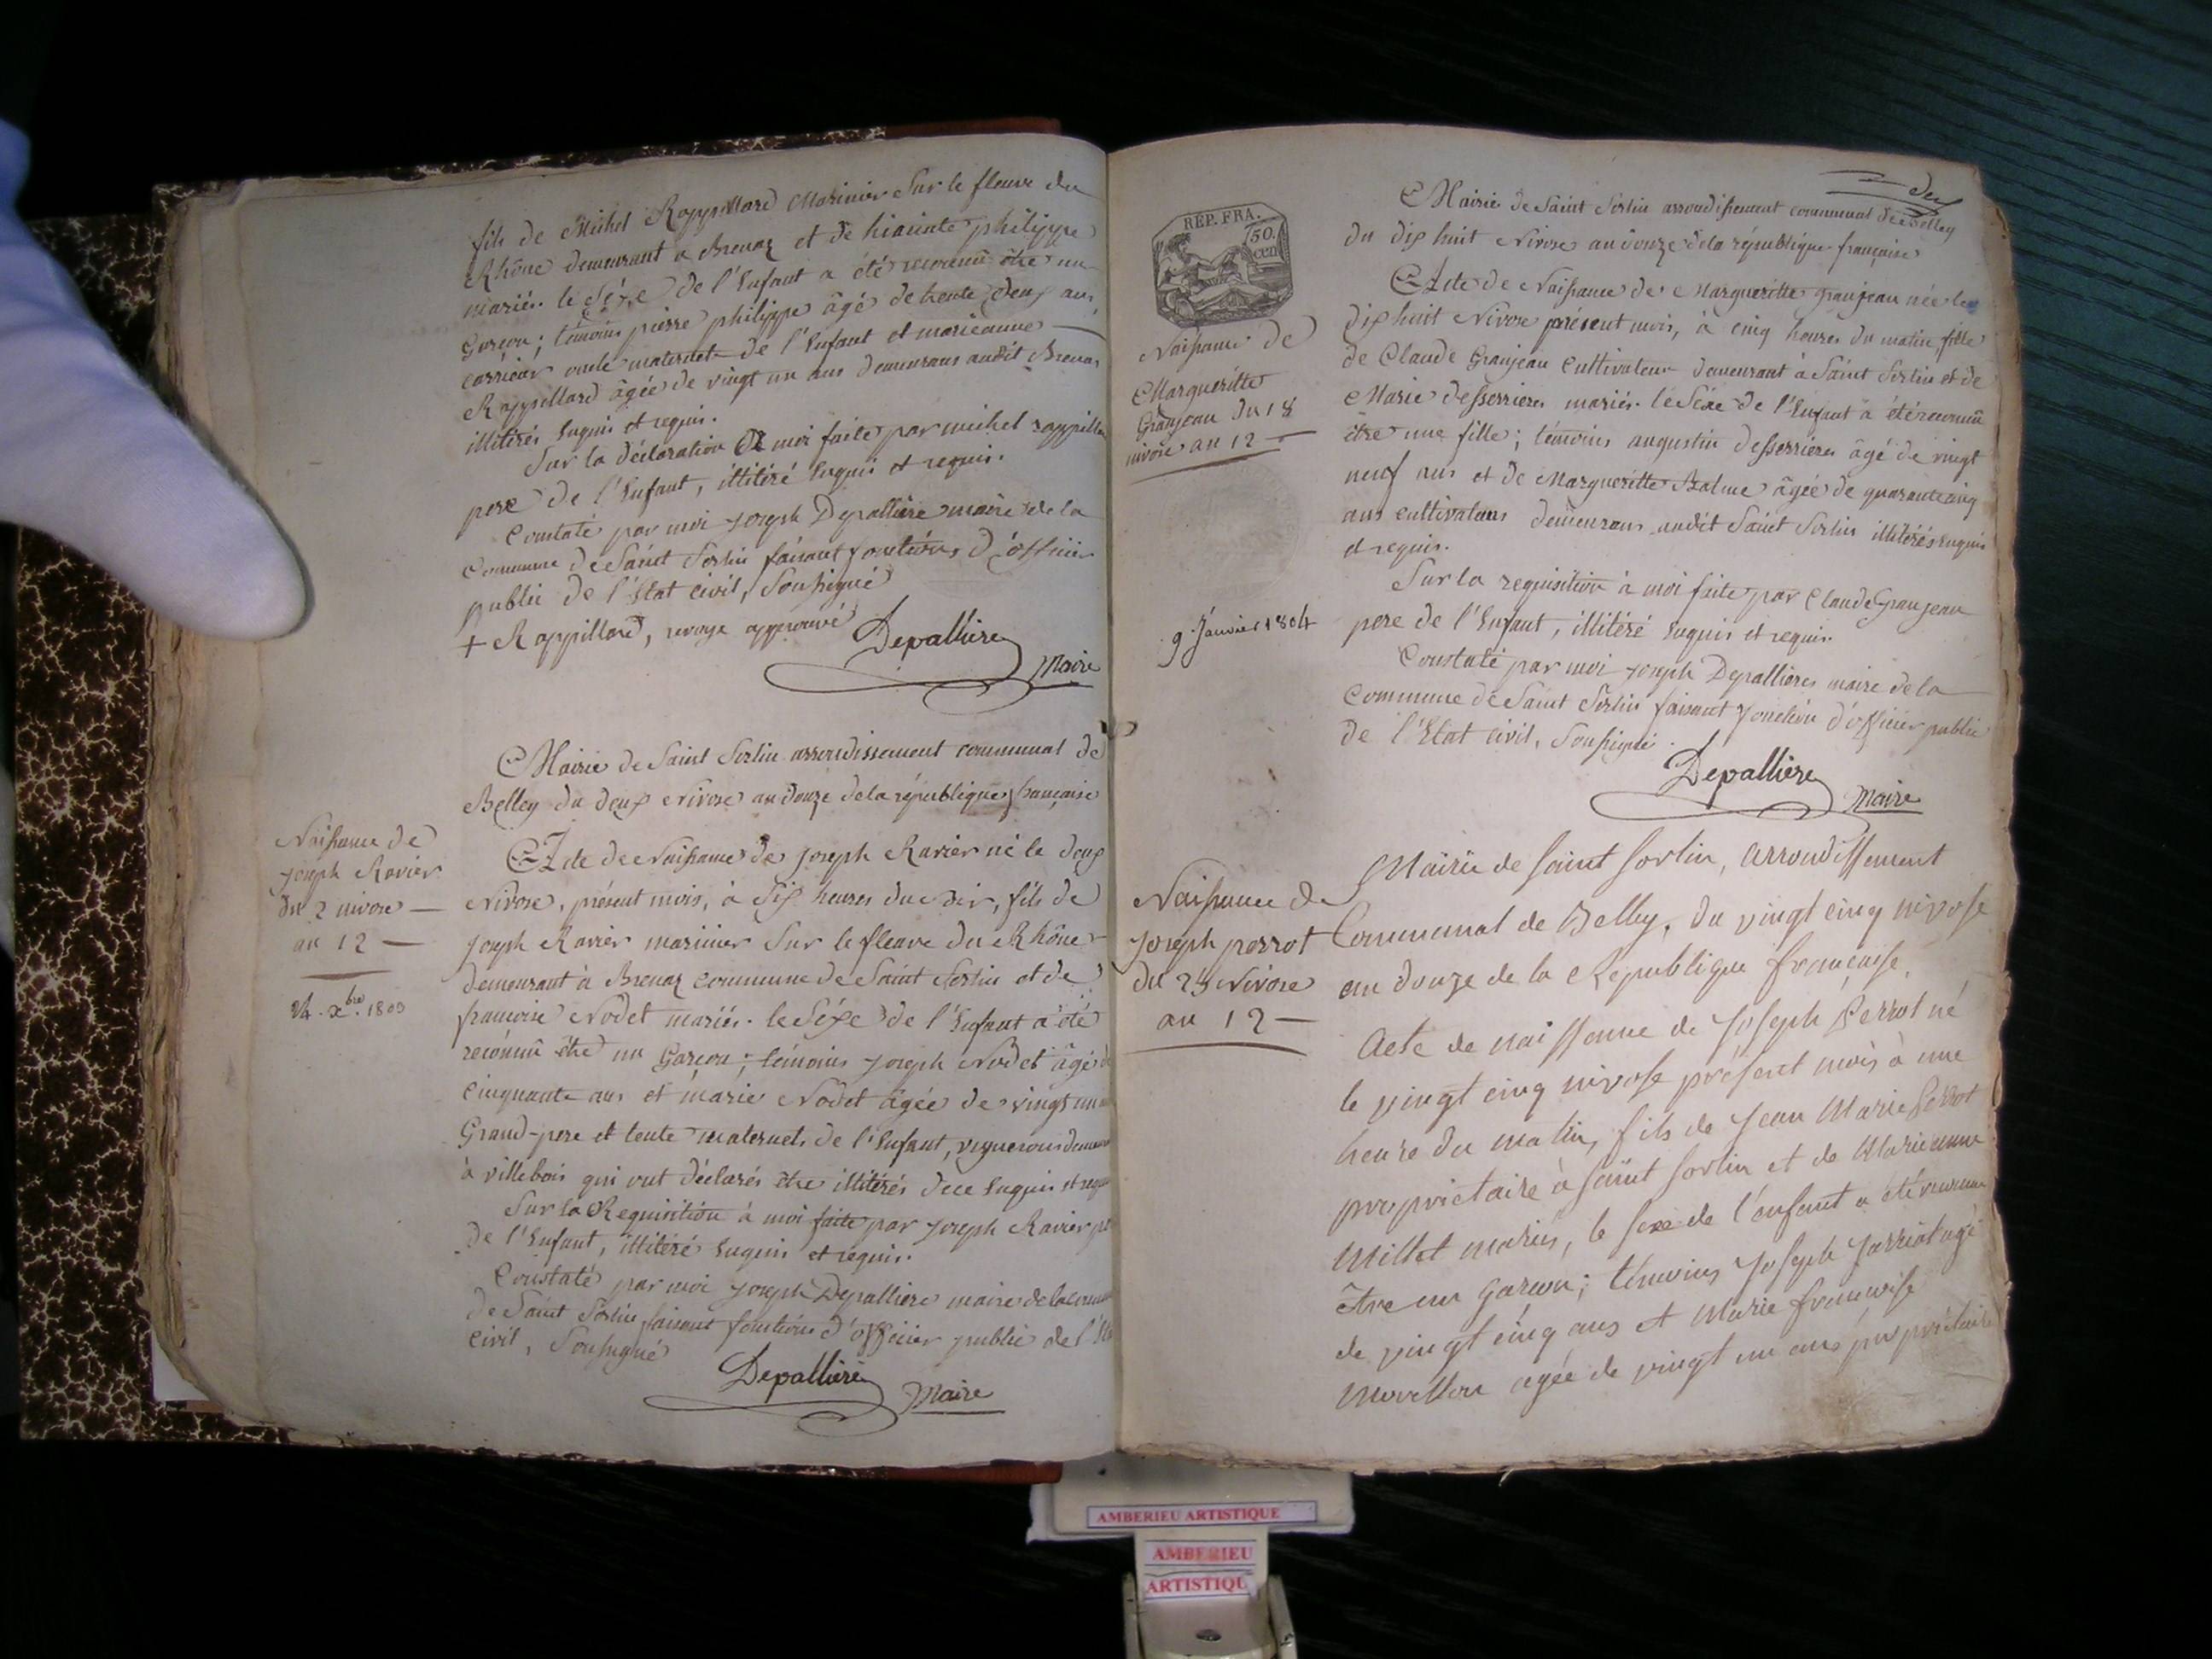 fils de Michel Rappillard Marinier Sur le fleuve du
Rhône demeurant à Brenaz et de hiacinte philippe
mariés. le Séxe de l'Enfant a été reconnû être un
Garçon; témoins pierre philippe âgé de trente deux ans,
carriéur oncle maternel de l'Enfant et marieanne
Rappillard âgée de vingt un ans demeurans audit Brenaz
illitérés Enquis et requis.
Sur la déclaration à moi faite par michel rappillard
pere de l'Enfant, illitéré Enquis et requis.
Constaté par moi joseph Depalliere maire de la
Commune de Saint Sorlin faisant fonctions d'officier
public de l'Etat civil, Soussigné
+ Rappillard, renvoye approuvé
Depalliere
Maire
Mairie de Saint Sorlin arrondissement communal de
Belley du deux nivose an douze de la république française
Naissance de
joseph Ravier
du 2 nivose
an 12
24. xbre. 1803
Acte de Naissance de joseph Ravier né le deux
Nivose, présent mois, à Six heures du Soir, fils de
joseph Ravier marinier Sur le fleuve du Rhône
demeurant à Brenaz commune de Saint Sorlin et de
françoise Nodet mariés. le Séxe de l'Enfant a été
reconnû être un Garçon; témoins joseph Nodet âgé de
Cinquante ans et marie Nodet âgée de vingt un
Grand-pere et tente maternels de l'Enfant, vignerons
à villebois qui ont déclarés être illitérés de ce Enquis et requis
Sur la Requisition à moi faite par joseph Ravier pere
de l'Enfant, illitéré Enquis et requis.
Constaté par moi joseph Depalliere maire de la commune
de Saint Sorlin faisant fonctions d'officier public de l'Etat
civil, Soussigné
Depalliere
Maire
REP. FRA.
50.
cen
Mairie de Saint Sorlin arrondissement communal de Belley
du dix huit Nivose an douze de la république française
Naissance de
Margueritte
Granjean du 18
nivose an 12
9. Janvier 1804
Acte de Naissance de Margueritte granjean née le
dix huit Nivose présent mois, à cinq heures du matin fille
de Claude Granjean Cultivateur demeurant à Saint Sorlin et de
Marie desserrieres mariés. le Séxe de l'Enfant a été reconnû
être une fille; témoins augustin desserrieres âgé de vingt
neuf ans et de Margueritte Balme âgée de quarante cinq
ans cultivateurs demeurans audit Saint Sorlin illitérés enquis
et requis.
Sur la requisition à moi faite par Claude Granjean
pere de l'Enfant, illitéré Enquis et requis.
Constaté par moi joseph Depallieres maire de la
Commune de Saint Sorlin faisant fonction d'officier public
de l'Etat civil, Soussigné.
Depalliere
Maire
Mairie de saint sorlin, arrondissement
Communal de Belley, du vingt cinq nivose
an douze de la République française.
Naissance de
joseph perrot
du 25 Nivose
an 12
Acte de naissance de Joseph Perrot né
le vingt cinq nivose présent mois à une
heure du matin, fils de Jean Marie Perrot
propriétaire à saint sorlin et de Marieanne
Millet mariés, le sexe de l'enfant a été reconnu
être un garçon; témoins Joseph Jarriat agé
de vingt cinq ans et Marie françoise
agée de vingt un ans propriétaires
AMBERIEU ARTISTIQUE
AMBERIEU
ARTISTIQU